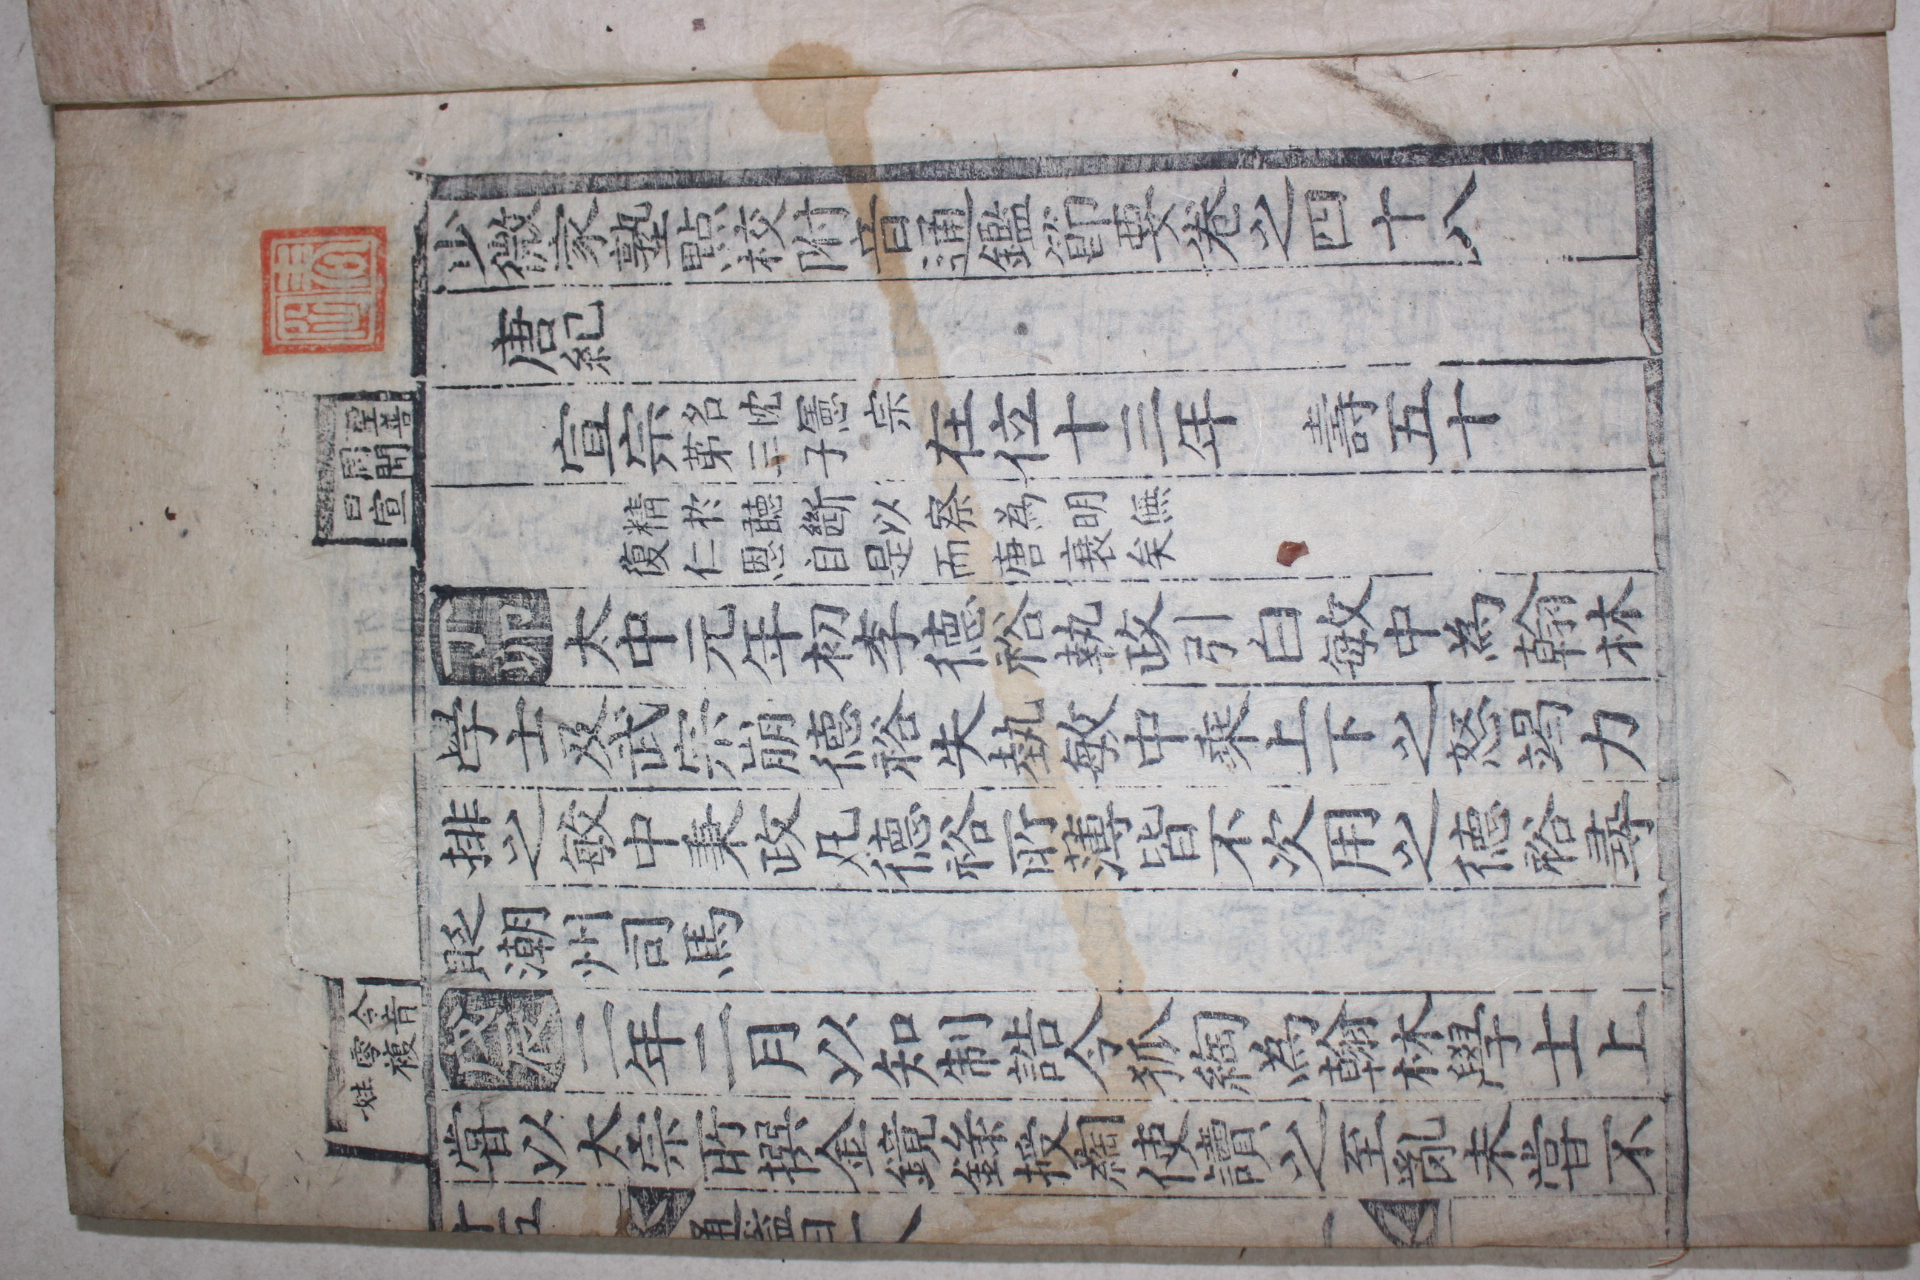 少微家塾點校附音通鑑節要卷之四十八
唐紀
聖善
周聞
曰宣
宣宗名忱憲宗第三子在位十三年 壽五十
精於聽斷以察為明無
復仁恩自是而唐衰矣
丁卯太中元年初李德裕執政引白敏中為翰林
學士及武宗崩德裕失埶敏中乘上下之怒竭力
排之敏中秉政凡德裕所薄皆不次用之德裕尋
貶潮州司馬
令音
零複
姓
戊辰二年二月以知制誥令狐綯為翰林學士上
嘗以太宗所撰金鏡錄授綯使讀之至亂未嘗不
十五 通鑑四十八 一